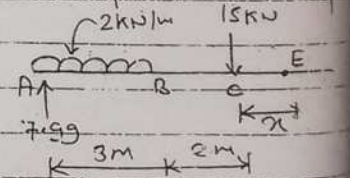 2KN/m 15KN
E
A B C
x
7.99
3m 2m